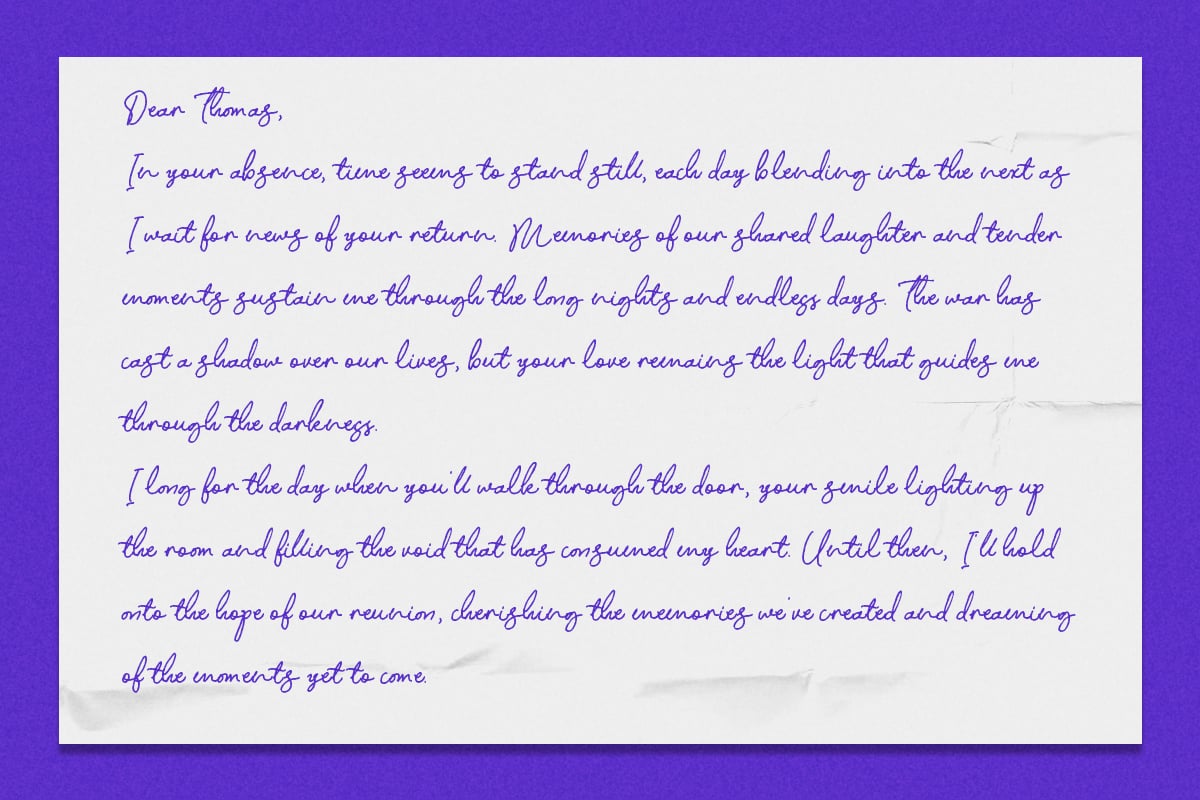 Dear Thomas,
In your absence, time seems to stand still, each day blending into the next as
I wait for news of your return. Memories of our shared laughter and tender
moments sustain me through the long nights and endless days. The war has
cast a shadow over our lives, but your love remains the light that guides me
through the darkness.
I long for the day when you'll walk through the door, your smile lighting up
the room and filling the void that has consumed my heart. Until then, I'll hold
onto the hope of our reunion, cherishing the memories we've created and dreaming
of the moments yet to come.